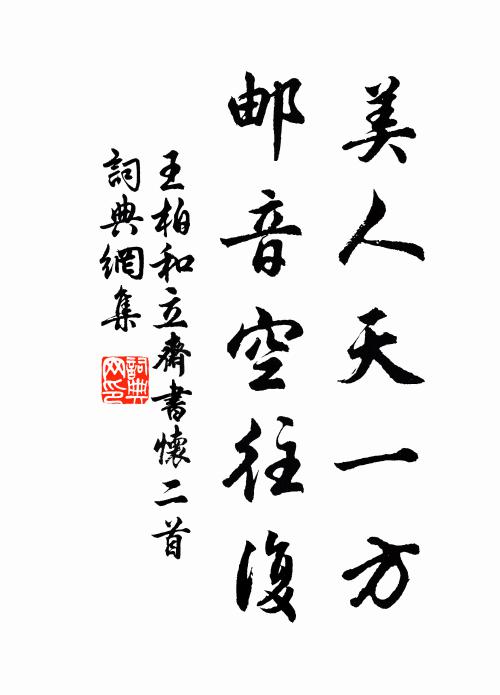 美人天一方
邮音空往復
王柏和立齋書懷二首
詞典網集
詞典网印